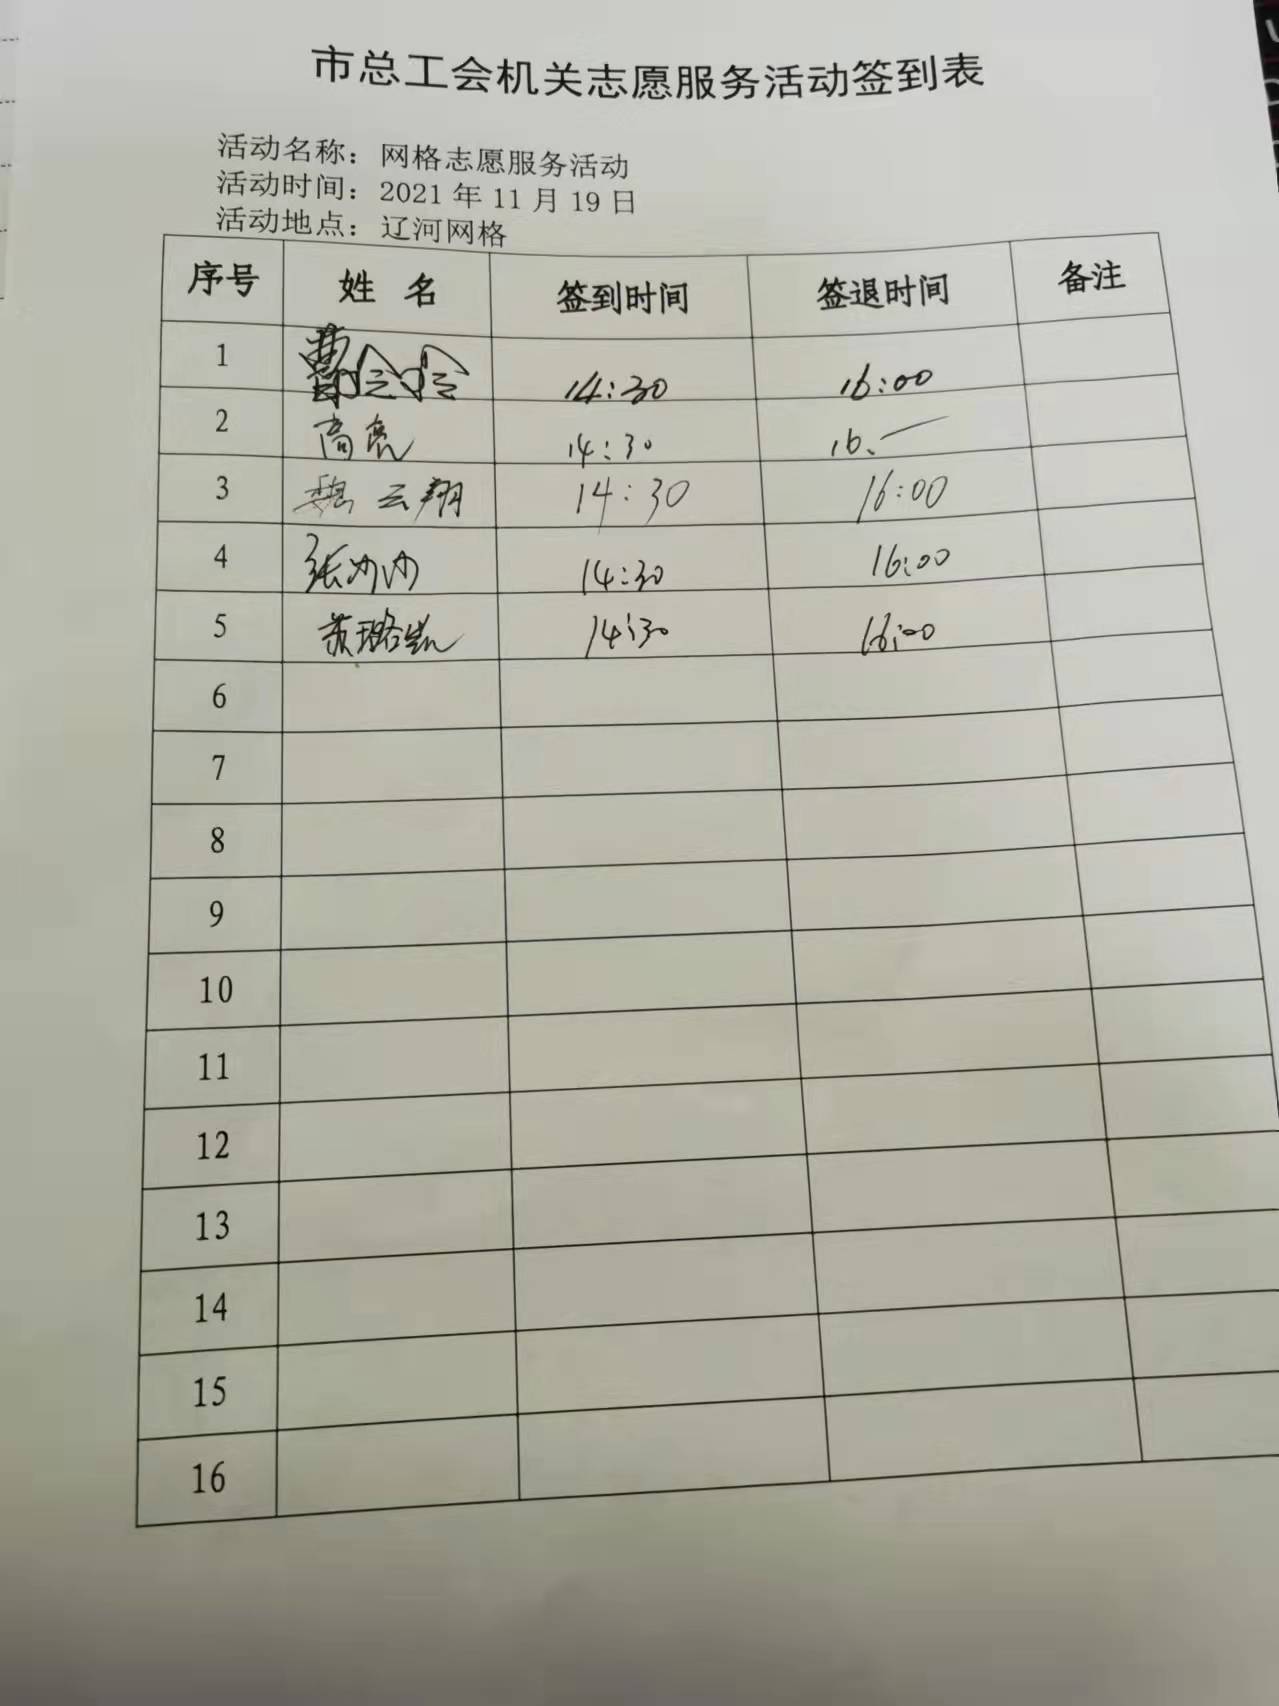 市总工会机关志愿服务活动签到表
活动名称：网格志愿服务活动
活动时间：2021 年 11 月 19 日
活动地点：辽河网格
序号 姓 名 签到时间 签退时间 备注
1 14:30 16:00
2 高亮 14:30 16、
3 魏云翔 14:30 16:00
4 张沙沙 14:30 16:00
5 14:30 16:00
6
7
8
9
10
11
12
13
14
15
16